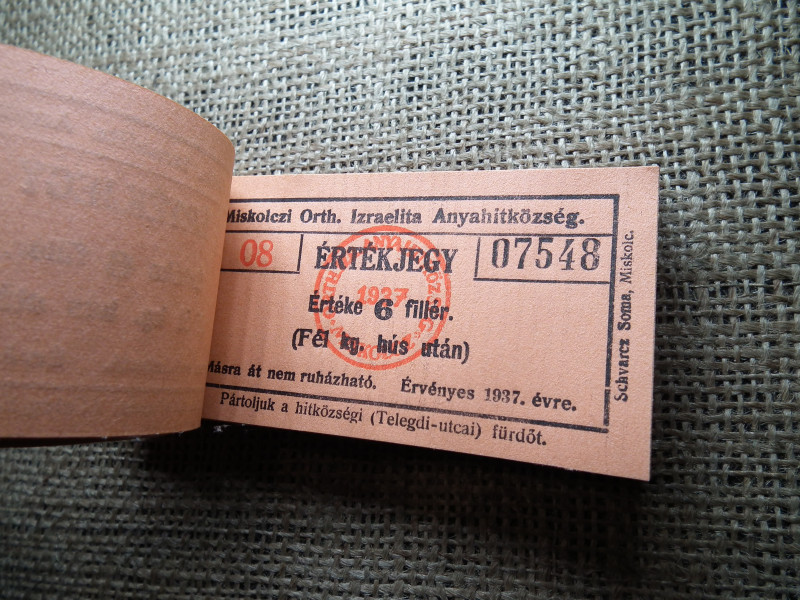 Miskolczi Orth. Izraelita Anyahitközség.
08
ÉRTÉKJEGY
07548
1937
Értéke 6 fillér.
(Fél kg. hús után)
Másra át nem ruházható. Érvényes 1937. évre.
Pártoljuk a hitközségi (Telegdi-utcai) fürdőt.
Schvarcz Soma, Miskolc.